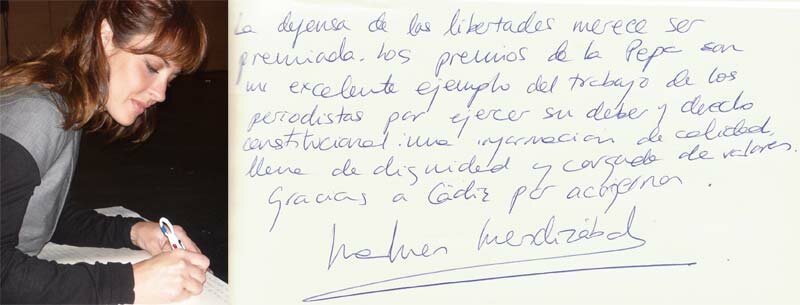 La defensa de las libertades merece ser
premiada. Los premios de la Pepa son
un excelente ejemplo del trabajo de los
periodistas por ejercer su deber y derecho
constitucional: una información de calidad,
llena de dignidad y cargada de valores.
Gracias a Cádiz por acogernos.
Mendizábal